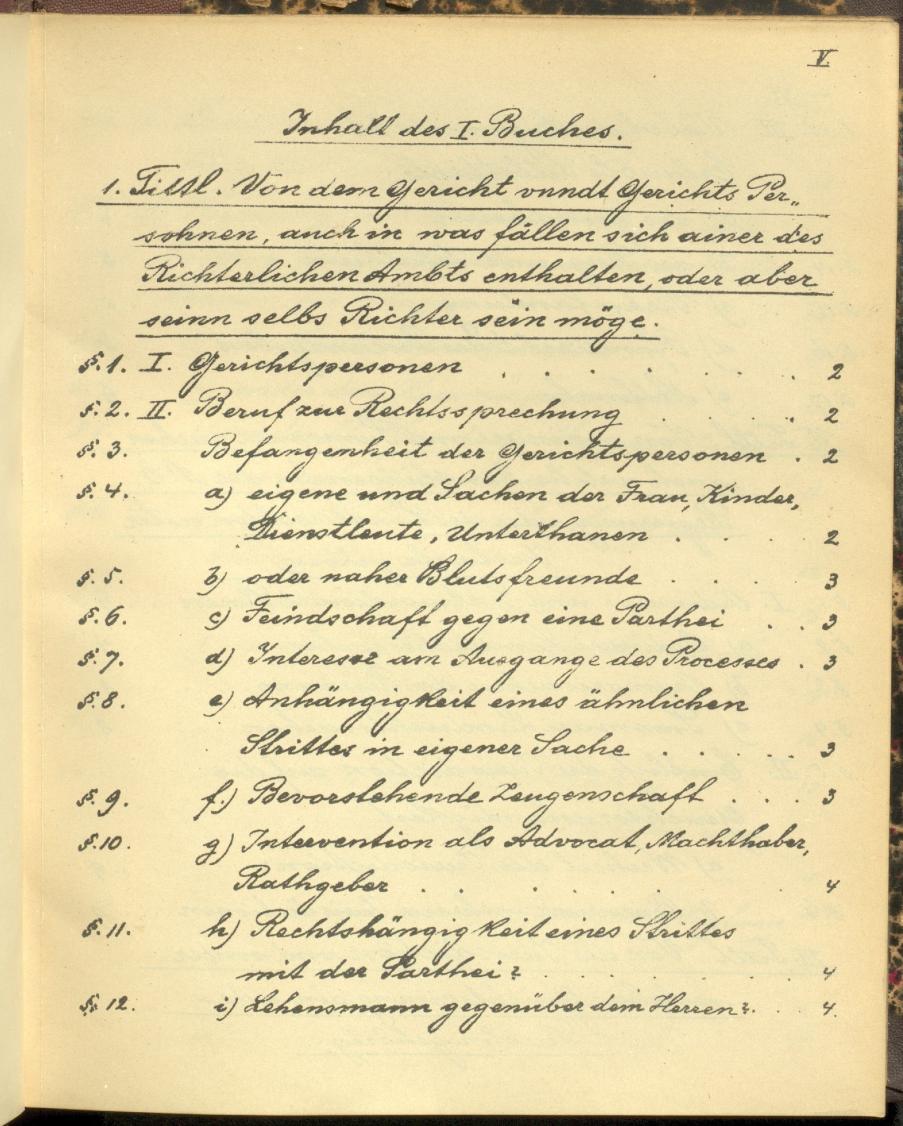 V.
Inhalt des I. Buches.
1. Tittl. Von dem Gericht vnndt Gerichts Per„
sohnen, auch in was fällen sich ainer des
Richterlichen Ambts enthalten, oder aber
seinn selbs Richter sein möge.
§. 1. I. Gerichtspersonen . . . . . . . 2
§. 2. II. Beruf zur Rechtssprechung . . . . 2
§. 3. Befangenheit der Gerichtspersonen . 2
§. 4. a) eigene und Sachen der Frau, Kinder,
Dienstleute, Unterthanen . . . . 2
§. 5. b) oder naher Blutsfreunde . . . . 3
§. 6. c) Feindschaft gegen eine Parthei . . 3
§. 7. d) Interesse am Ausgange des Processes . 3
§. 8. e) Anhängigkeit eines ähnlichen
Strittes in eigener Sache . . . . . . 3
§. 9. f.) Bevorstehende Zeugenschaft . . . 3
§. 10. g) Intervention als Advocat, Machthaber,
Rathgeber . . . . . . . 4
§. 11. h) Rechtshängigkeit eines Strittes
mit der Parthei? . . . . . . 4
§. 12. i) Lehensmann gegenüber dem Herren? . . 4.